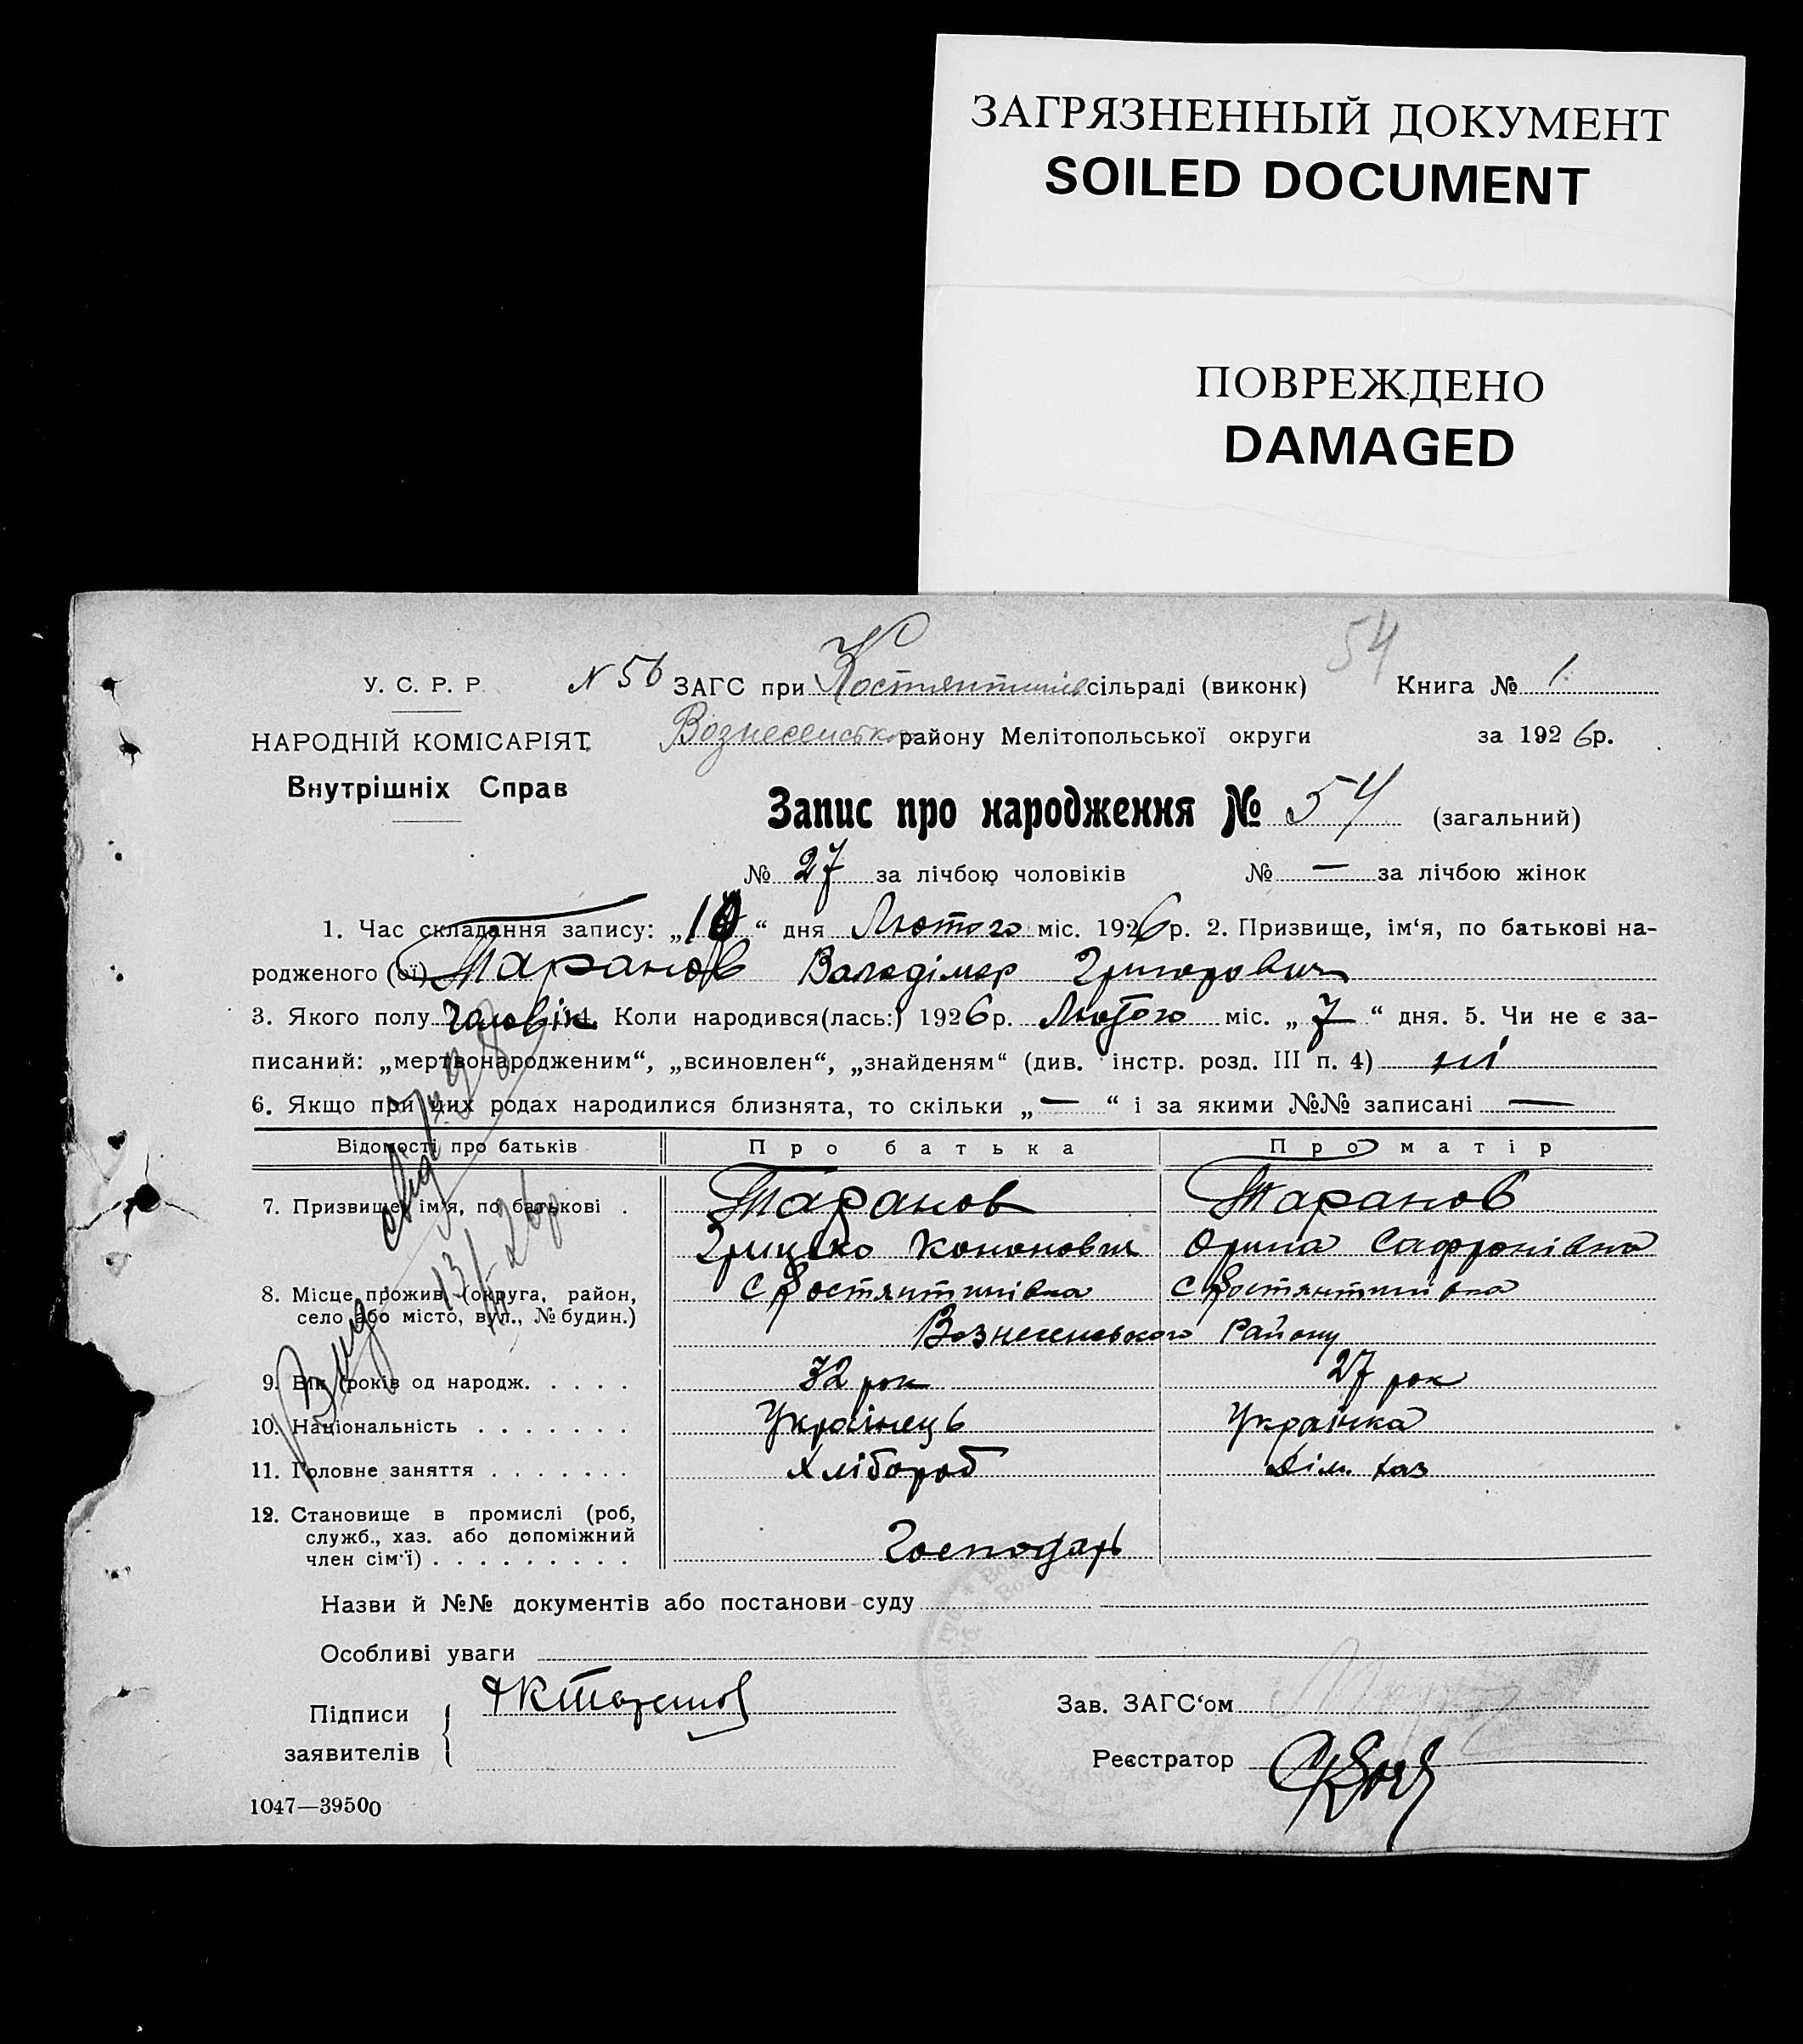 ЗАГРЯЗНЕННЫЙ ДОКУМЕНТ
SOILED DOCUMENT
ПОВРЕЖДЕНО
DAMAGED
54
У. С. Р. Р. N 56 ЗАГС при Костянтинів сільраді (виконк) Книга № 1
НАРОДНІЙ КОМІСАРІЯТ Вознесенсько району Мелітопольської округи за 1926р.
Внутрішніх Справ
Запис про народження № 54 (загальний)
№ 27 за лічбою чоловіків № — за лічбою жінок
1. Час складання запису: „10“ дня Лютого міс. 1926р. 2. Призвище, ім‘я, по батькові на-
родженого (ої) Таранов Володімер Григорович
3. Якого полу чоловік 4. Коли народився(лась:) 1926р. Лютого міс. „7“ дня. 5. Чи не є за-
писаний: „мертвонародженим“, „всиновлен“, „знайденям“ (див. інстр. розд. III п. 4) ні
6. Якщо при цих родах народилися близнята, то скільки „—“ і за якими №№ записані —
Відомості про батьків Про батька Про матір
7. Призвище, ім‘я, по батькові . Таранов Таранов
Грицько Кононович Орина Сафронівна
8. Місце прожив. (округа, район, с Костянтинівка с Костянтинівка
село або місто, вул., № будин.)
Вознесенського Району
9. Вік (років од народж. . . . . 32 рок 27 рок
10. Національність . . . . . . . Українець Українка
11. Головне заняття . . . . . . . Хлібороб Дім. хаз
12. Становище в промислі (роб,
служб., хаз. або допоміжний
член сім‘ї) . . . . . . . . . Господарь
Назви й №№ документів або постанови суду
Особливі уваги
Підписи
заявителів
Зав. ЗАГС‘ом
Реєстратор
1047—39500